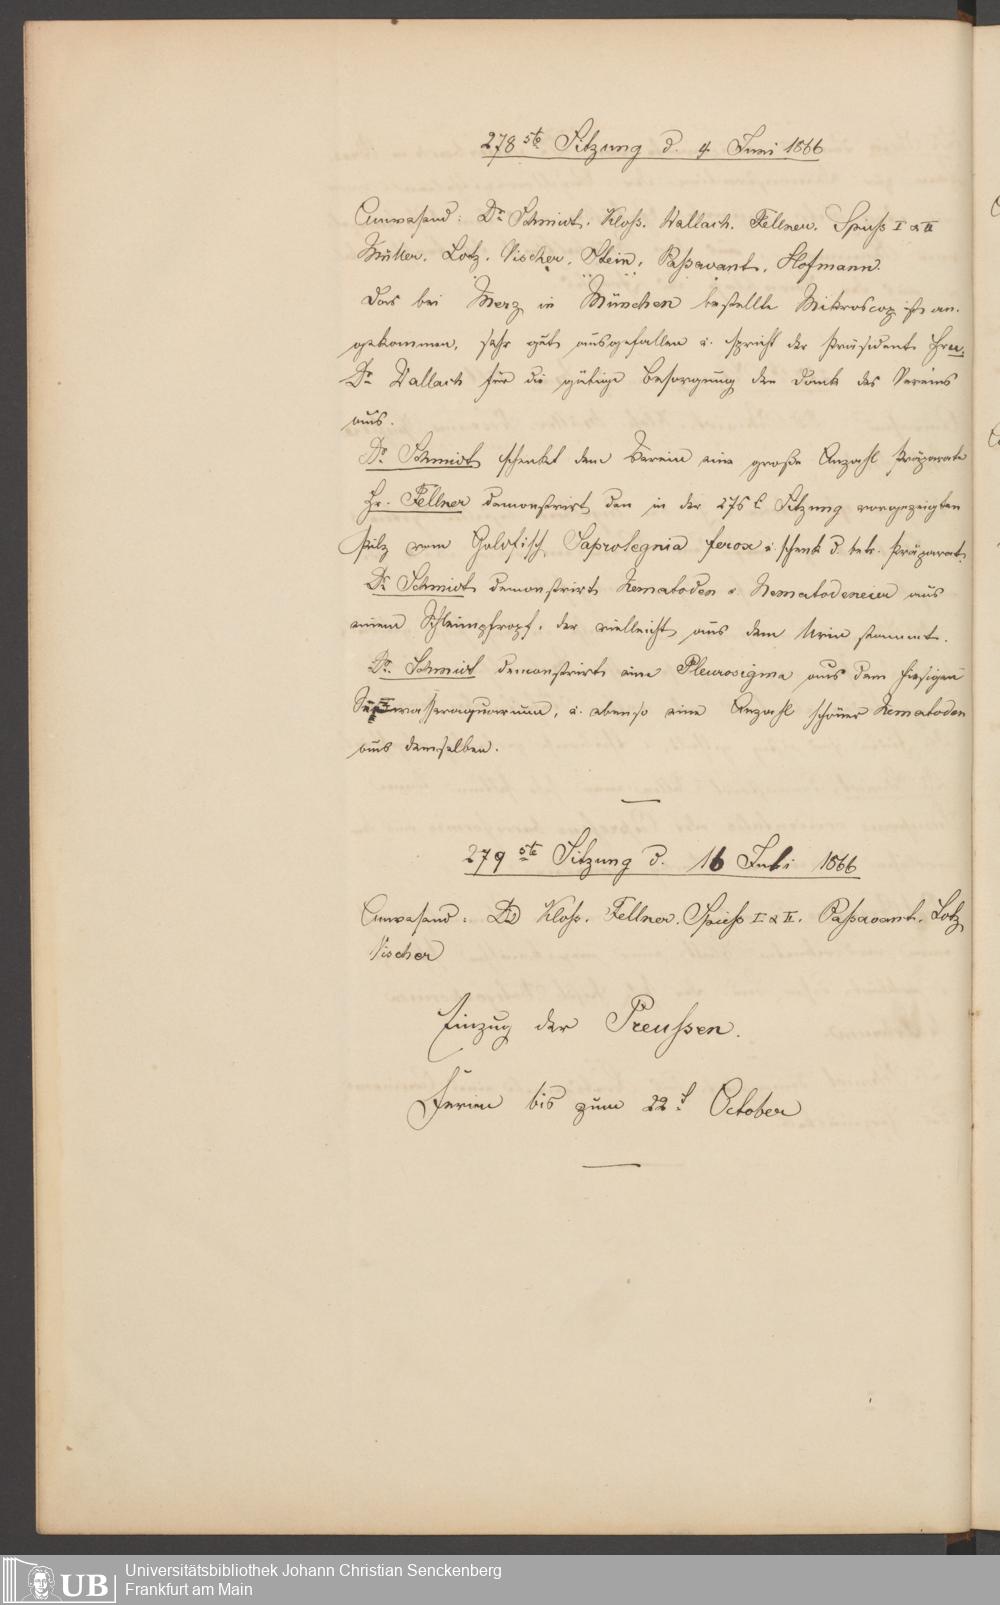 278 ste Sitzung d. 4 Juni 1866
Anwesend: Dr Schmidt. Kloß. Wallach. Fellner. Spieß I & II
Müller. Lotz. Vischer. Stein. Passavant. Hofmann.
Das bei Merz in München bestellte Mikroscop ist an-
gekommen, sehr gut ausgefallen u. spricht der Präsident Hrn.
Dr Wallach für die gütige Besorgung den Dank des Vereins
aus.
Dr. Schmidt schenkt dem Verein eine große Anzahl Präparate
Hr. Fellner demonstrirt den in der 276 t Sitzung vorgezeigten
Pilz vom Goldfisch Saprolegnia ferox u. schenkt d. betr. Präparat.
Dr. Schmidt demonstrirt Nematoden u. Nematodeneier aus
einem Schleimpfropf, der vielleicht aus dem Urin stammt.
Dr. Schmidt demonstrirt eine Pleurosigma aus dem hiesigen
Süßwasseraquarium, u. ebenso eine Anzahl schöner Nematoden
aus demselben.
279 ste Sitzung d. 16 Juli 1866
Anwesend: DD Kloß. Fellner. Spieß I & II. Passavant. Lotz
Vischer
Einzug der Preussen.
Ferien bis zum 22 t October
UB
Universitätsbibliothek Johann Christian Senckenberg
Frankfurt am Main